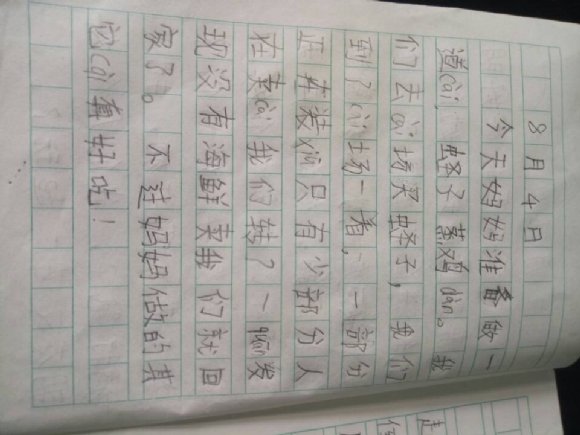 8月4日
今天妈妈准备做一
道cài，蛏子蒸鸡dàn。我
们去cài场买蛏子，我们
到了cài场一看，一部分
正在装xiū只有少部分人
在卖cài我们转了一quān发
现没有海鲜卖我们就回
家了。不过妈妈做的其
它cài真好吃！